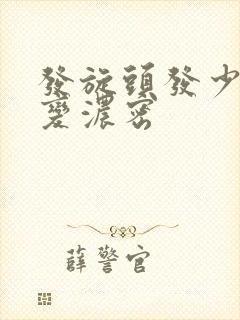 發旋頭發少
變濃密
薛警官